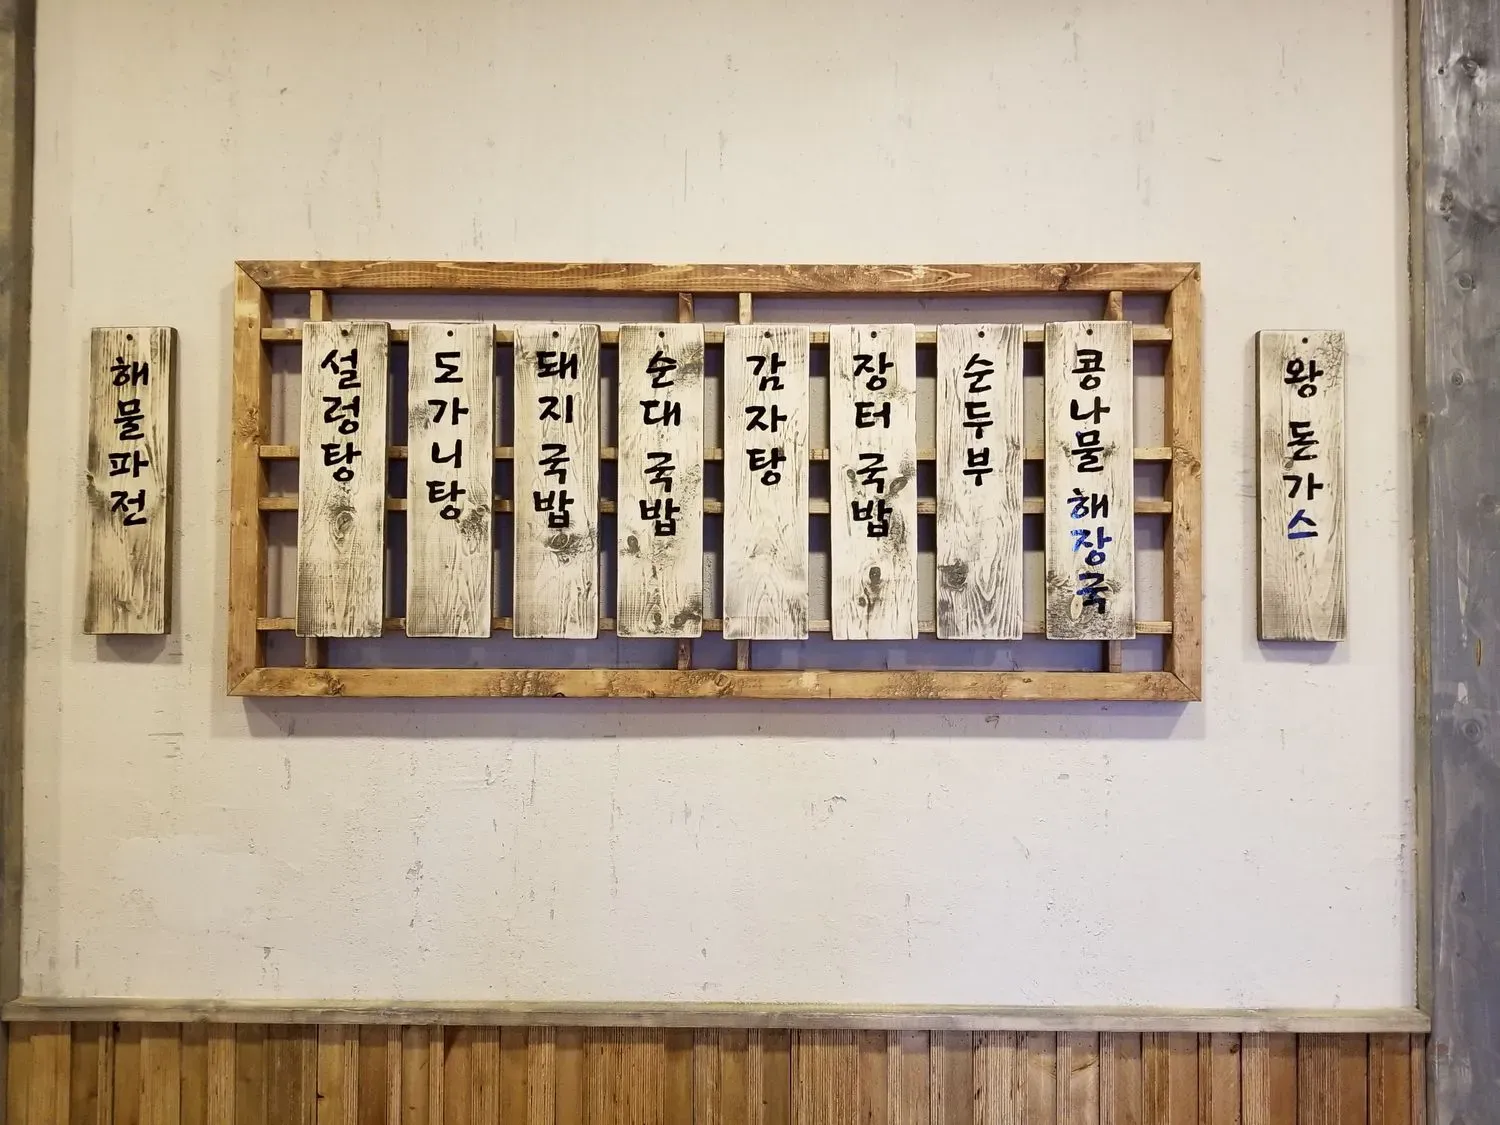 해물파전
설렁탕
도가니탕
돼지 국밥
순대 국밥
감자탕
장터 국밥
순두부
콩나물 해장국
왕 돈가스